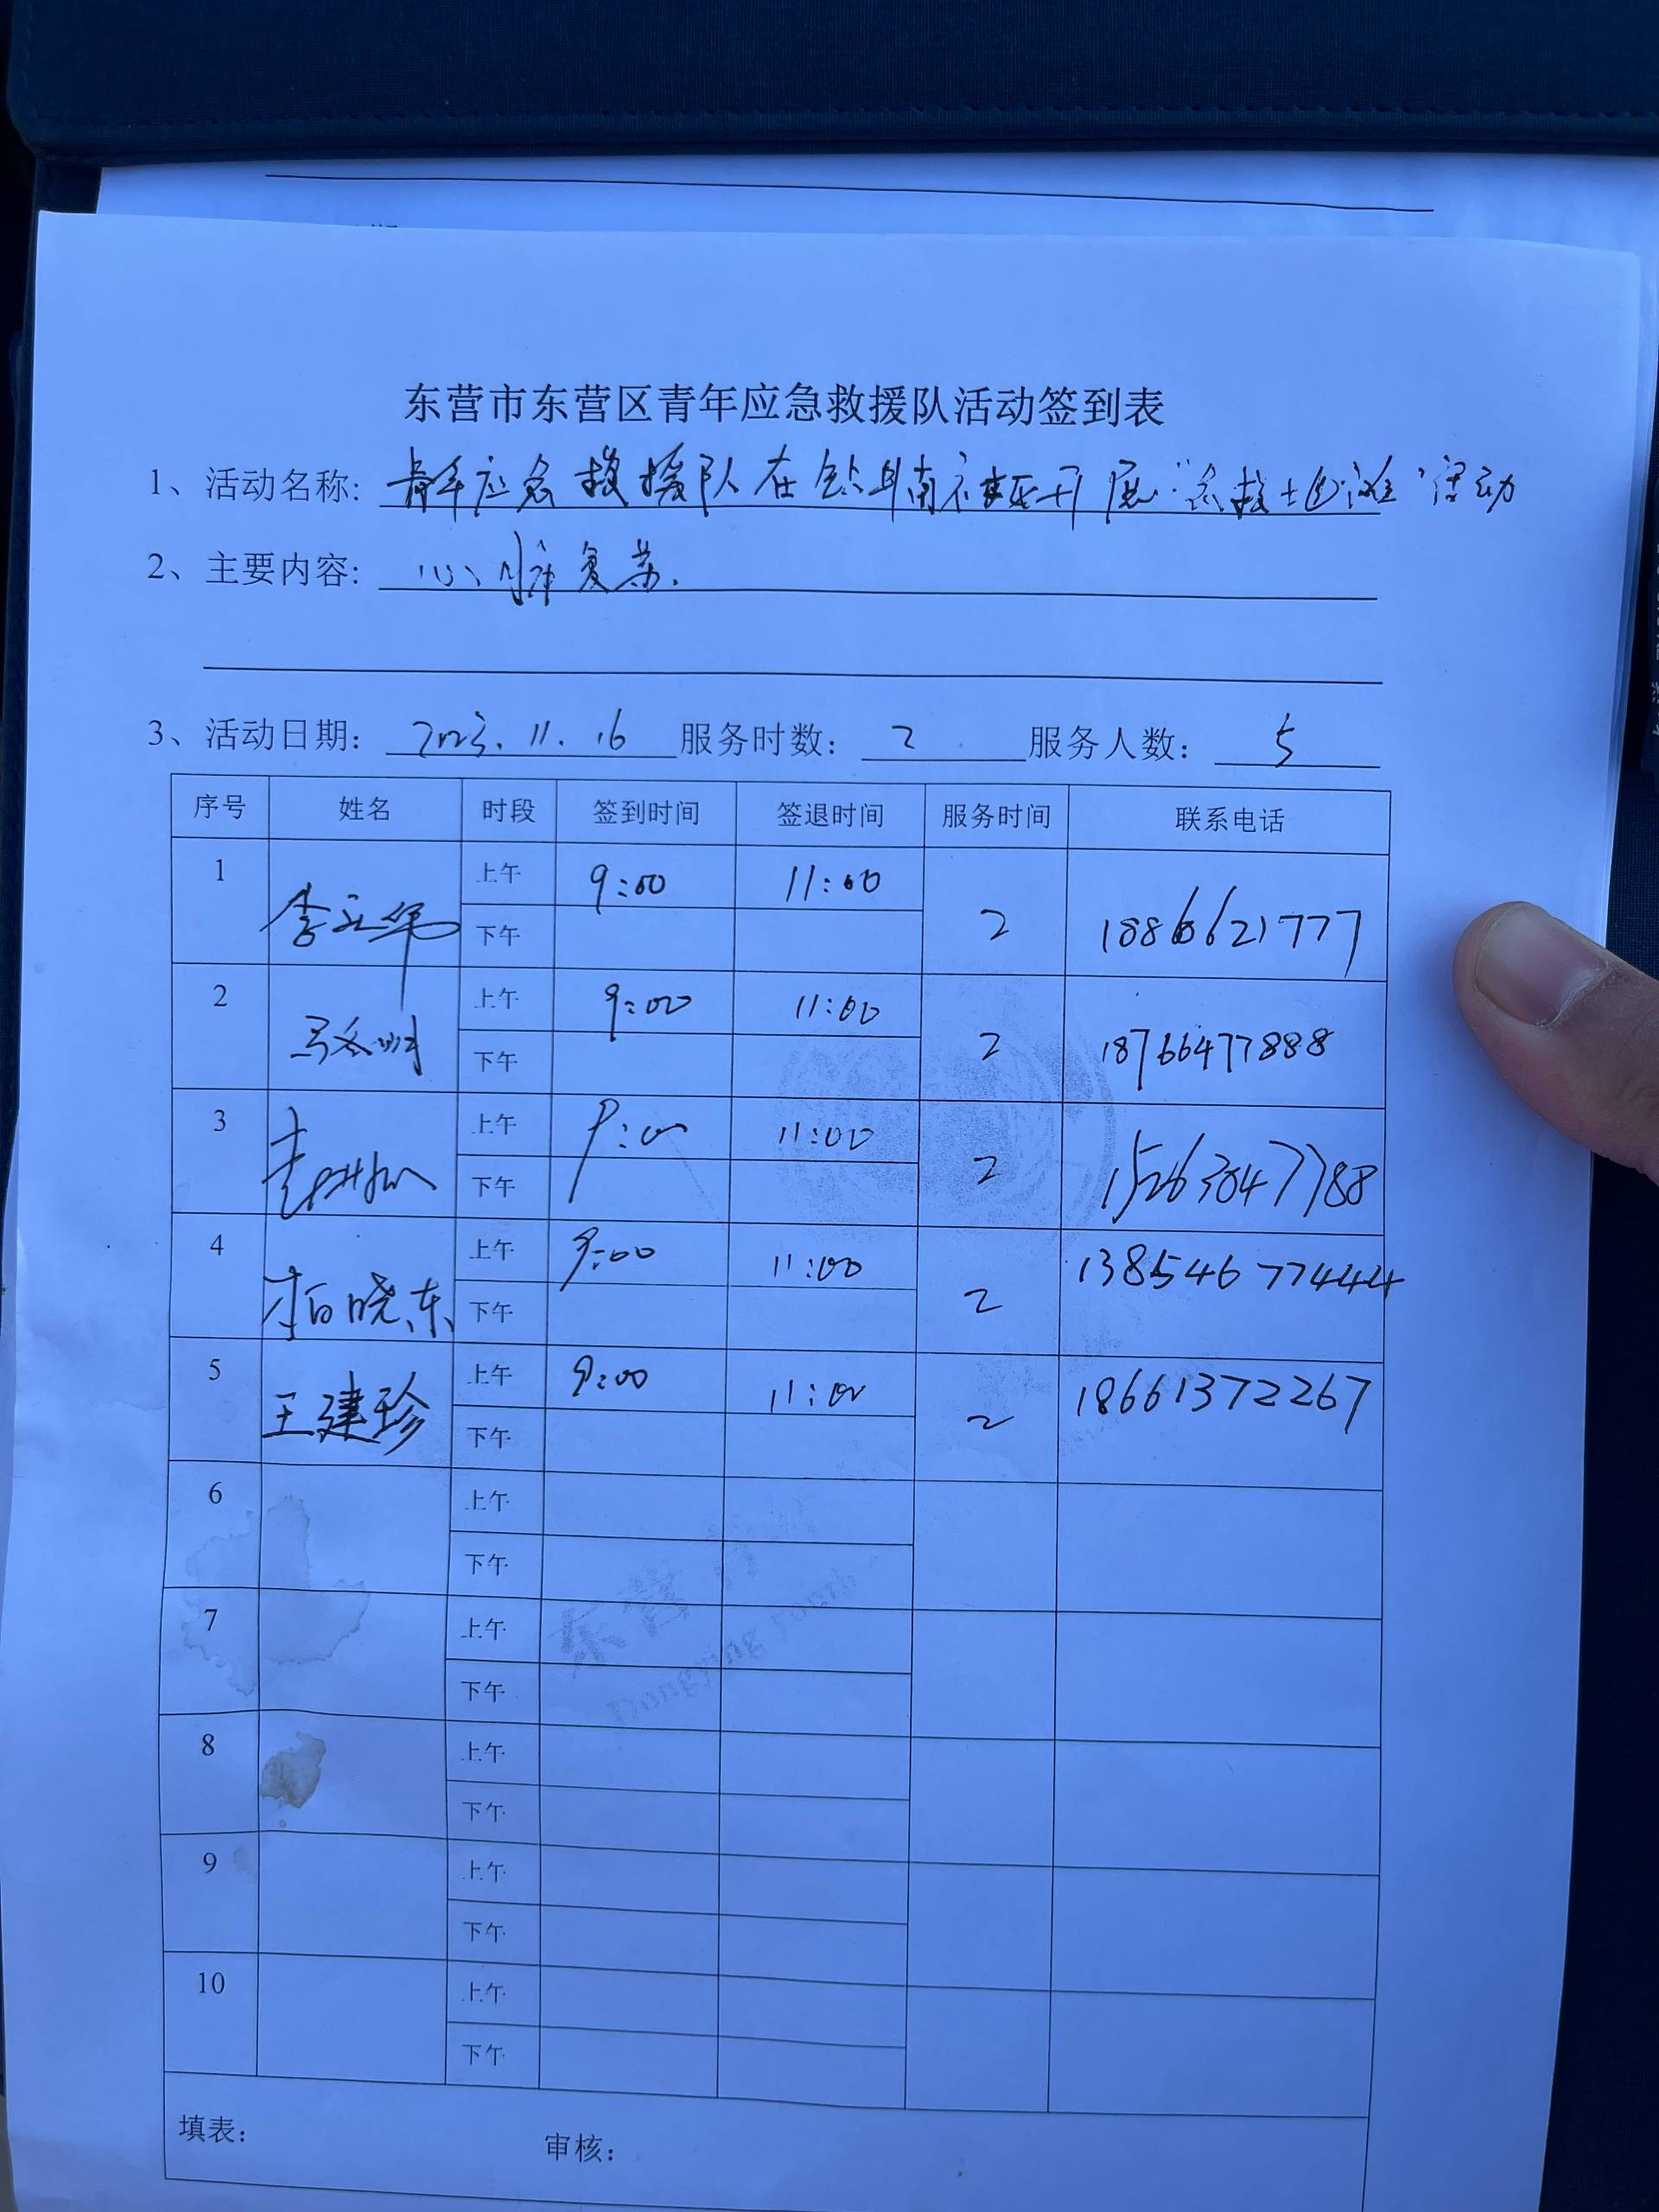 东营市东营区青年应急救援队活动签到表
1、活动名称: 青年应急救援队在 南 社区开展“急救地摊”活动
2、主要内容: 心肺复苏.
3、活动日期: 2023.11.16 服务时数: 2 服务人数: 5
序号 姓名 时段 签到时间 签退时间 服务时间 联系电话
1 李 上午 9:00 11:00 2 18866621777
下午
2 马 上午 9:00 11:00 2 18766477888
下午
3 上午 9:00 11:00 2 15263047788
下午
4 柏晓东 上午 9:00 11:00 2 13854677444
下午
5 王建珍 上午 9:00 11:00 2 18661372267
下午
6 上午
下午
7 上午
下午
8 上午
下午
9 上午
下午
10 上午
下午
填表: 审核:
东营
Dongying